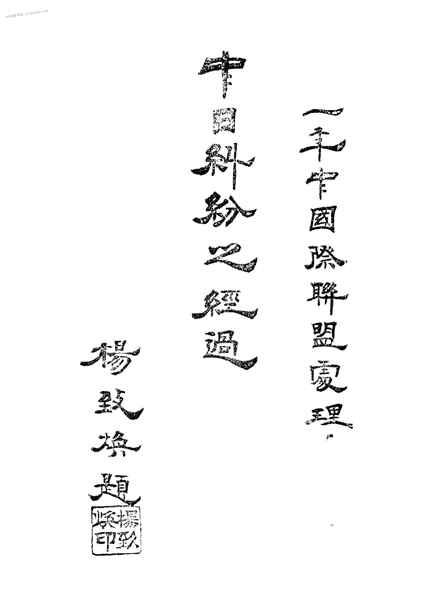 一年中國際聯盟處理
中日糾紛之經過
楊致煥題
楊致
煥印